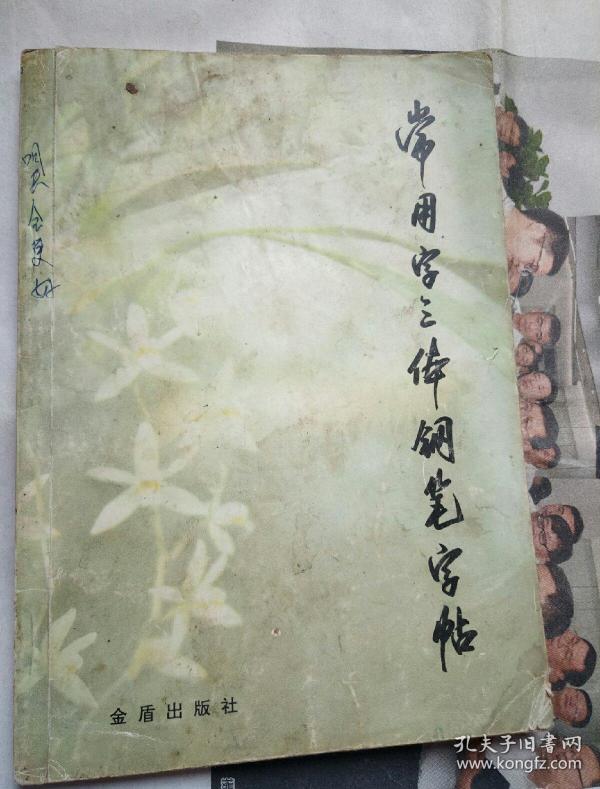 常用字三体钢笔字帖
金盾出版社
孔夫子旧书网
www.kongfz.com